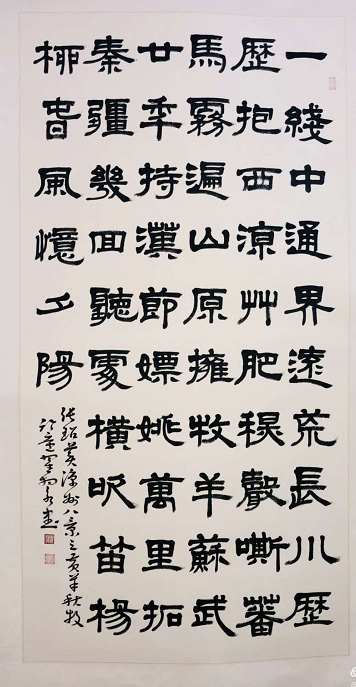 一綫中通界遠荒長川歷
歷抱西涼艸肥秋聲嘶蕃
馬霧遍山原擁牧羊蘇武
廿秊持漢節嫖姚萬里拓
秦疆幾回聽處橫吹笛楊
柳旾風憶夕陽
張玿美涼州八景之黃羊秋牧
書